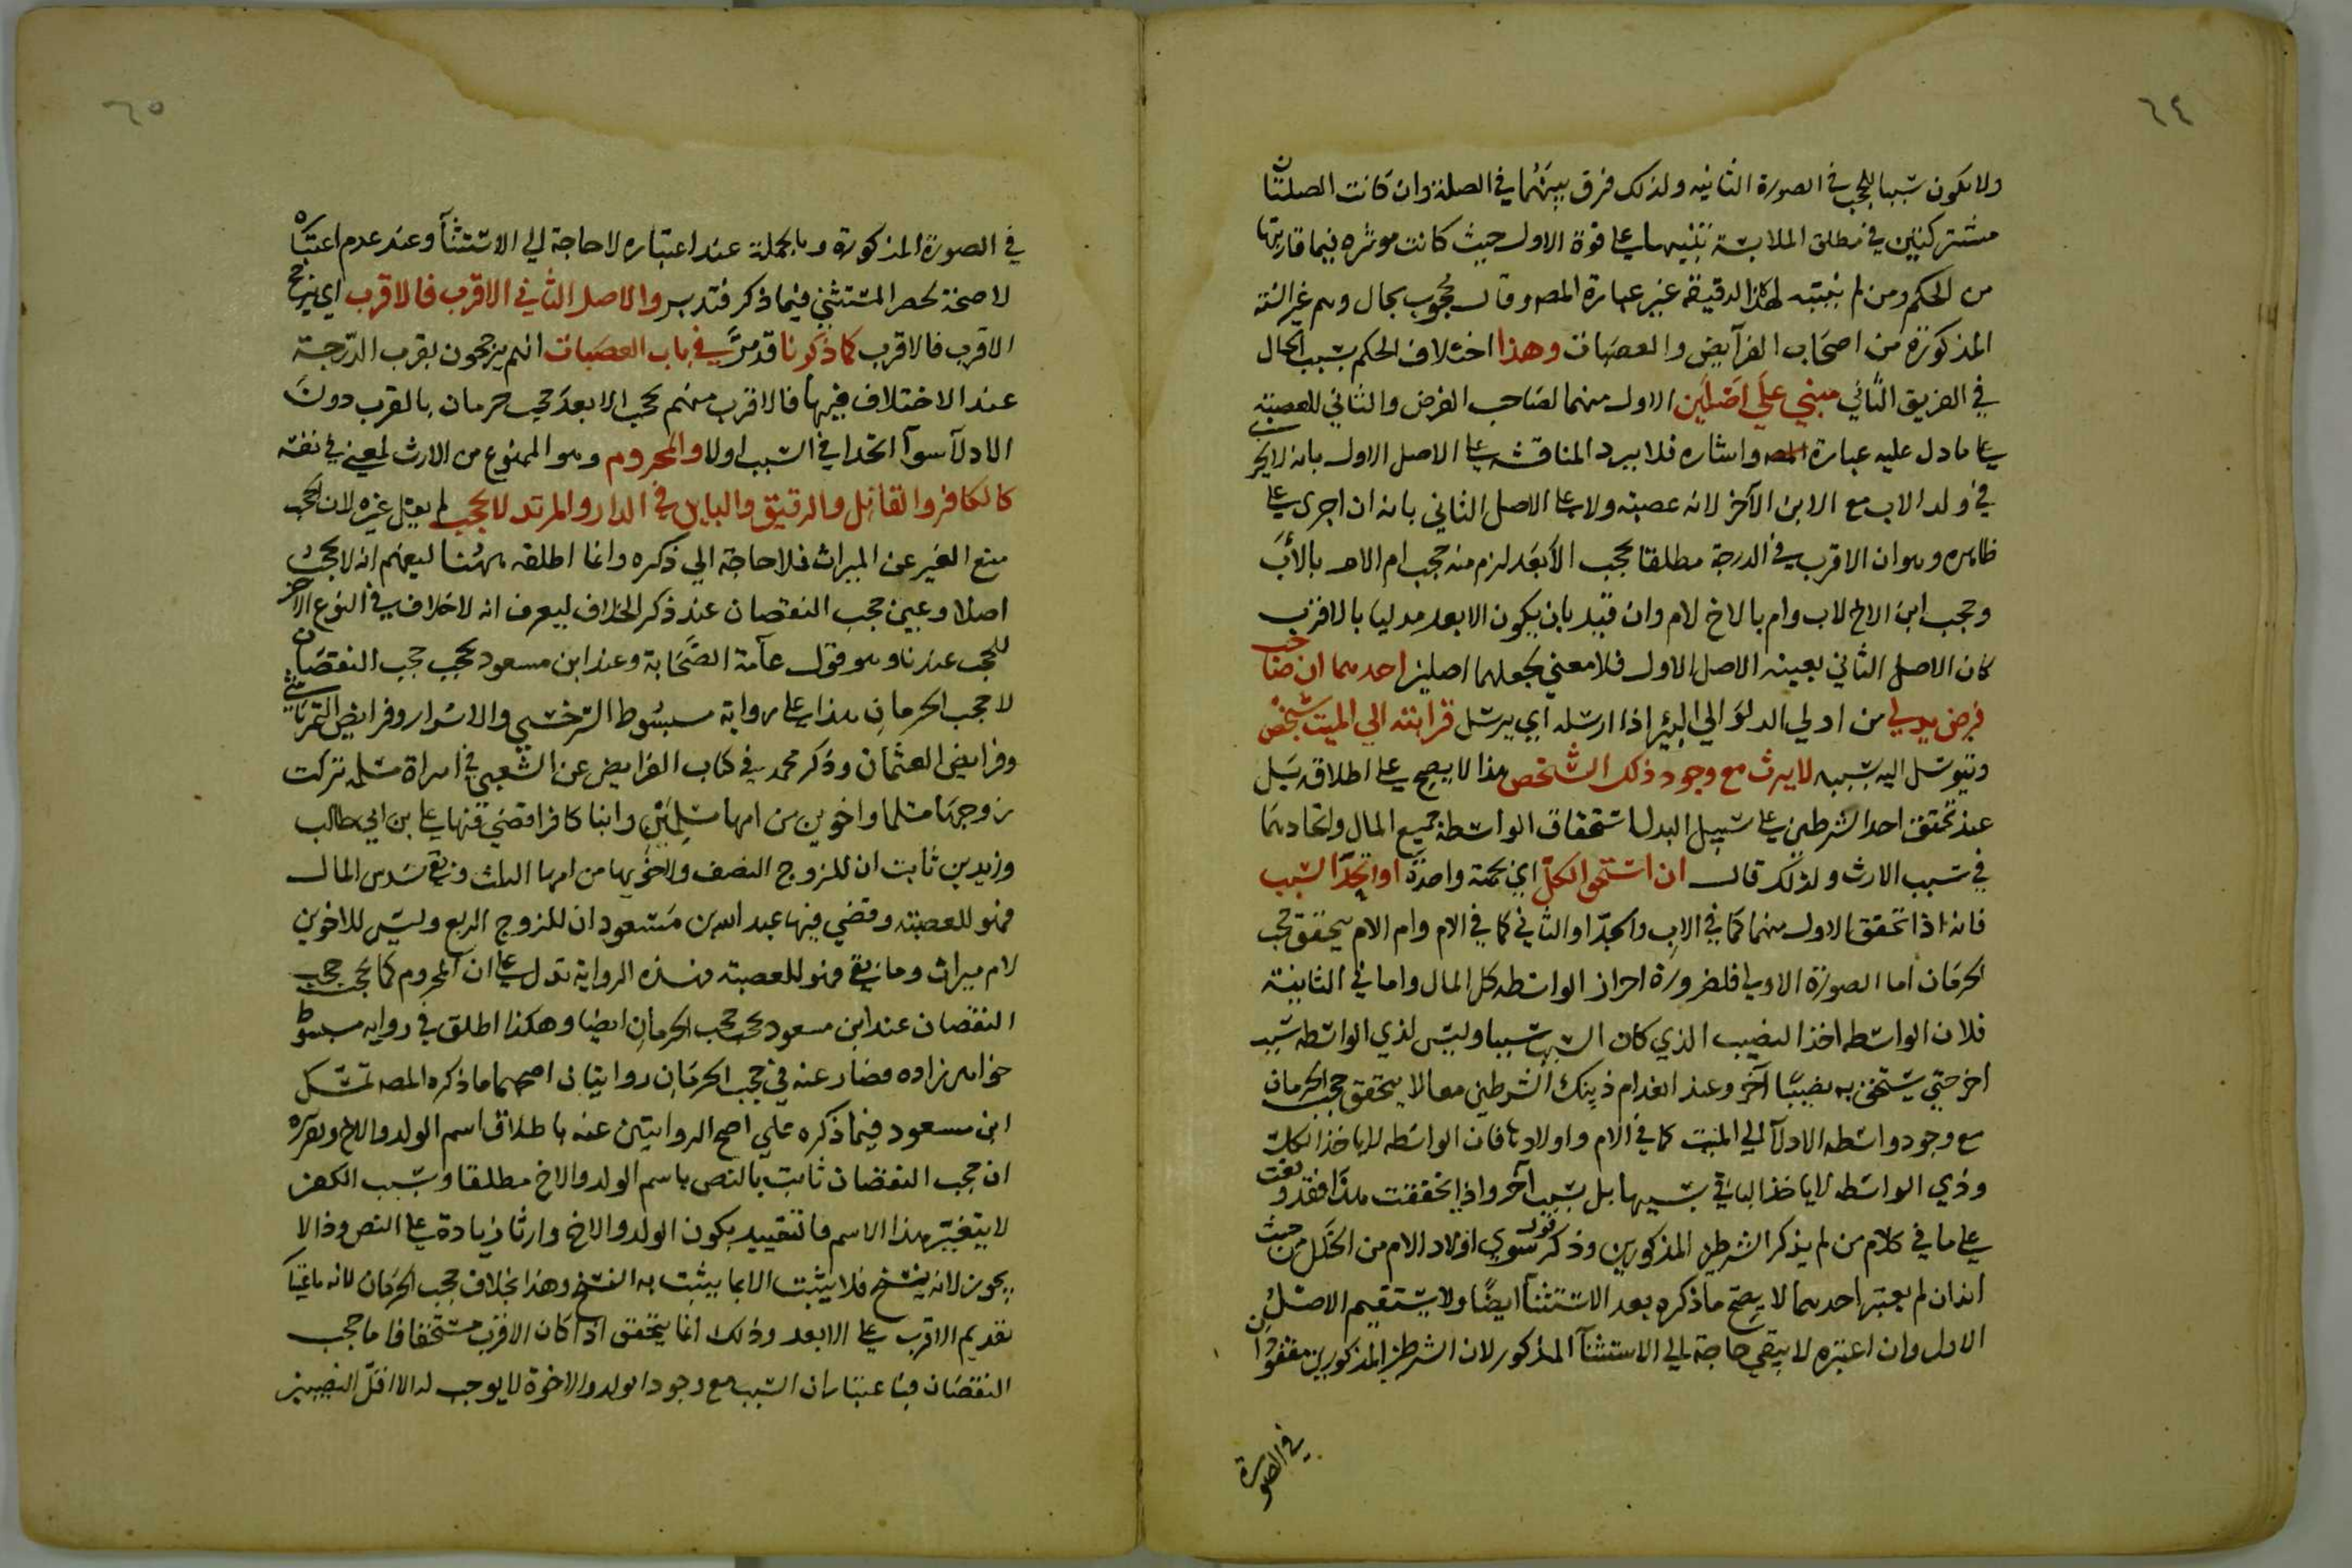 ٦٤
ولا يكون سببا للحجب في الصورة الثانيه ولذلك فرق بينهما في الصلة وان كانت الصلتان
مشتركتين في مطلق الملابسة تنبيها على قوة الاول حيث كانت موثره فيما قارنها
من الحكم ومن لم يتنبه لهذا الدقيقة غير عبارة المصـ وقال محجوب بحال وهم غير الستة
المذكورة من اصحاب الفرآيض والعصبات وهذا اختلاف الحكم بسبب الحال
في الفريق الثاني مبني على اصلين الاول منهما لصاحب الفرض والثاني للعصبته
على ما دل عليه عبارة المصـ واشاره فلا يرد المناقشه على الاصل الاول بانه لا يجري
في ولد الاب مع الابن الآخر لانه عصبته ولا على الاصل الثاني بانه ان اجرى على
ظاهره وهو ان الاقرب في الدرجة مطلقا يحجب الأبعد لزم منه حجب ام الام بالأب
وحجب ابن الاخ لاب وام بالاخ لام وان قيد بان يكون الابعد مدليا بالاقرب
كان الاصل الثاني بعينه الاصل الاول فلا معنى لجعلهما اصلين احدهما ان صاحب
فرض يدلي من ادلى الدلو الي البئر اذا ارسله اي يرسل قرابته الي الميت بشخص
ويتوسل اليه بسببه لا يرث مع وجود ذلك الشخص هذا لا يصح على اطلاقه بل
عند تحقق احد الشرطين على سبيل البدل استحقاق الواسطة جميع المال واتحادهما
في سبب الارث ولذلك قال ان استحق الكل اي بجهة واحدة او اتحد السبب
فانه اذا تحقق الاول منهما كما في الاب والجد او الثاني كما في الام وام الام يتحقق حجب
الحرمان اما الصورة الاولى فلضرورة احراز الواسطه كل المال واما في الثانية
فلان الواسطه اخذ النصيب الذي كان السبب سببا وليس لذي الواسطه سبب
اخر حتى يستحق به نصيبًا آخر وعند انعدام ذينك الشرطين معا لا يتحقق حجب الحرمان
مع وجود واسطه الادلآ الي الميت كما في الام واولادها فان الواسطه لا ياخذ الكل
وذي الواسطه لا ياخذ الباقي بسببها بل بسبب آخر واذا تحققت هذا فقد وقفت
على ما في كلام من لم يذكر الشرطين المذكورين وذكر قول سوى اولاد الام من الخلل من حيث
انه ان لم يعتبر احدهما لا يصح ما ذكره بعد الاستثنآ ايضًا ولا يستقيم الاصل
الاول وان اعتبره لا يبقى حاجة الي الاستثنآ المذكور لان الشرطين المذكورين مفقودان
في الصورة
٦٥
في الصورة المذكورة وبالجملة عند اعتباره لاحاجة الي الاستثنآ وعند عدم اعتباره
لا صحة لحصر المستثنى فيما ذكر فتدبر والاصل الثاني الاقرب فالاقرب اي يرجح
الاقرب فالاقرب كما ذكرنا قد مرّ في باب العصبات انهم يرجحون بقرب الدرجة
عند الاختلاف فيها فالاقرب منهم يحجب الابعد حجب حرمان بالقرب دون
الادلآ سوآ اتحدا في السبب اولا والمحروم وهو الممنوع من الارث لمعنى في نفسه
كالكافر والقاتل والرقيق والمباين في الدار والمرتد لا يحجب لم يقل غيره لان الحجب
منع الغير عن الميراث فلا حاجة الي ذكره وانما اطلقه ههنا ليفهم انه لا يحجب
اصلا وعين حجب النقصان عند ذكر الخلاف ليعرف انه لاخلاف في النوع الآخر
للحجب عندنا وهو قول عآمة الصحابة وعند ابن مسعود يحجب حجب النقصان
لا حجب الحرمان هذا على رواية مبسوط السرخسي والاسرار وفرايض التمرتاشي
وفرايض العثمان وذكر محمد في كتاب الفرايض عن الشعبي في امراة مسلمة تركت
زوجها مسلما واخوين من امها مسلمين وابنا كافرا فقضى فيها علي بن ابي طالب
وزيد بن ثابت ان للزوج النصف ولاخويها من امها الثلث وبقي سدس المال
فهو للعصبته وقضى فيها عبد الله بن مسعود ان للزوج الربع وليس للاخوين
لام ميراث وما بقي فهو للعصبته فهذه الرواية تدل على ان المحروم كما يحجب حجب
النقصان عند ابن مسعود يحجب حجب الحرمان ايضا وهكذا اطلق في روايه مبسوط
خواهر زاده فصار عنه في حجب الحرمان روايتان اصحهما ما ذكره المصـ تمسك
ابن مسعود فيما ذكره على اصح الروايتين عنه باطلاق اسم الولد والاخ وتقريره
ان حجب النقصان ثابت بالنص باسم الولد والاخ مطلقا وبسبب الكفر
لا يتغير هذا الاسم فالتقييد بكون الولد والاخ وارثا زيادة على النص وذا لا
يجوز لانه ينسخ فلا يثبت الا بما يثبت به النسخ وهذا بخلاف حجب الحرمان لانه باعتبار
تقديم الاقرب على الابعد وذلك انما يتحقق اذا كان الاقرب مستحقا فاما حجب
النقصان فباعتبار ان السبب مع وجود الولد والاخوة لا يوجب له الا اقل النصيبين